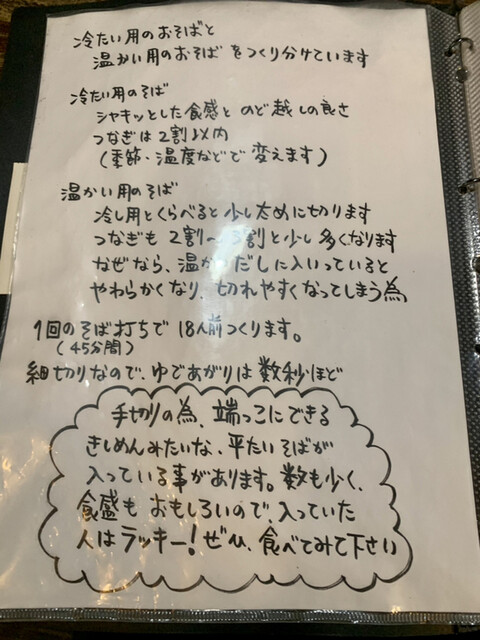 冷たい用のおそばと
温かい用のおそば をつくり分けています
冷たい用のそば
シャキッとした食感と のど越しの良さ
つなぎは2割以内
(季節・温度などで変えます)
温かい用のそば
冷し用とくらべると少し太めに切ります
つなぎも 2割〜3割と少し多くなります
なぜなら、温かいだしに入いっていると
やわらかくなり、切れやすくなってしまう為
1回のそば打ちで 18人前つくります。
(45分間)
細切りなので、ゆであがりは数秒ほど
手切りの為、端っこにできる
きしめんみたいな、平たいそばが
入っている事があります。数も少く、
食感も おもしろいので、入っていた
人はラッキー!ぜひ、食べてみて下さい